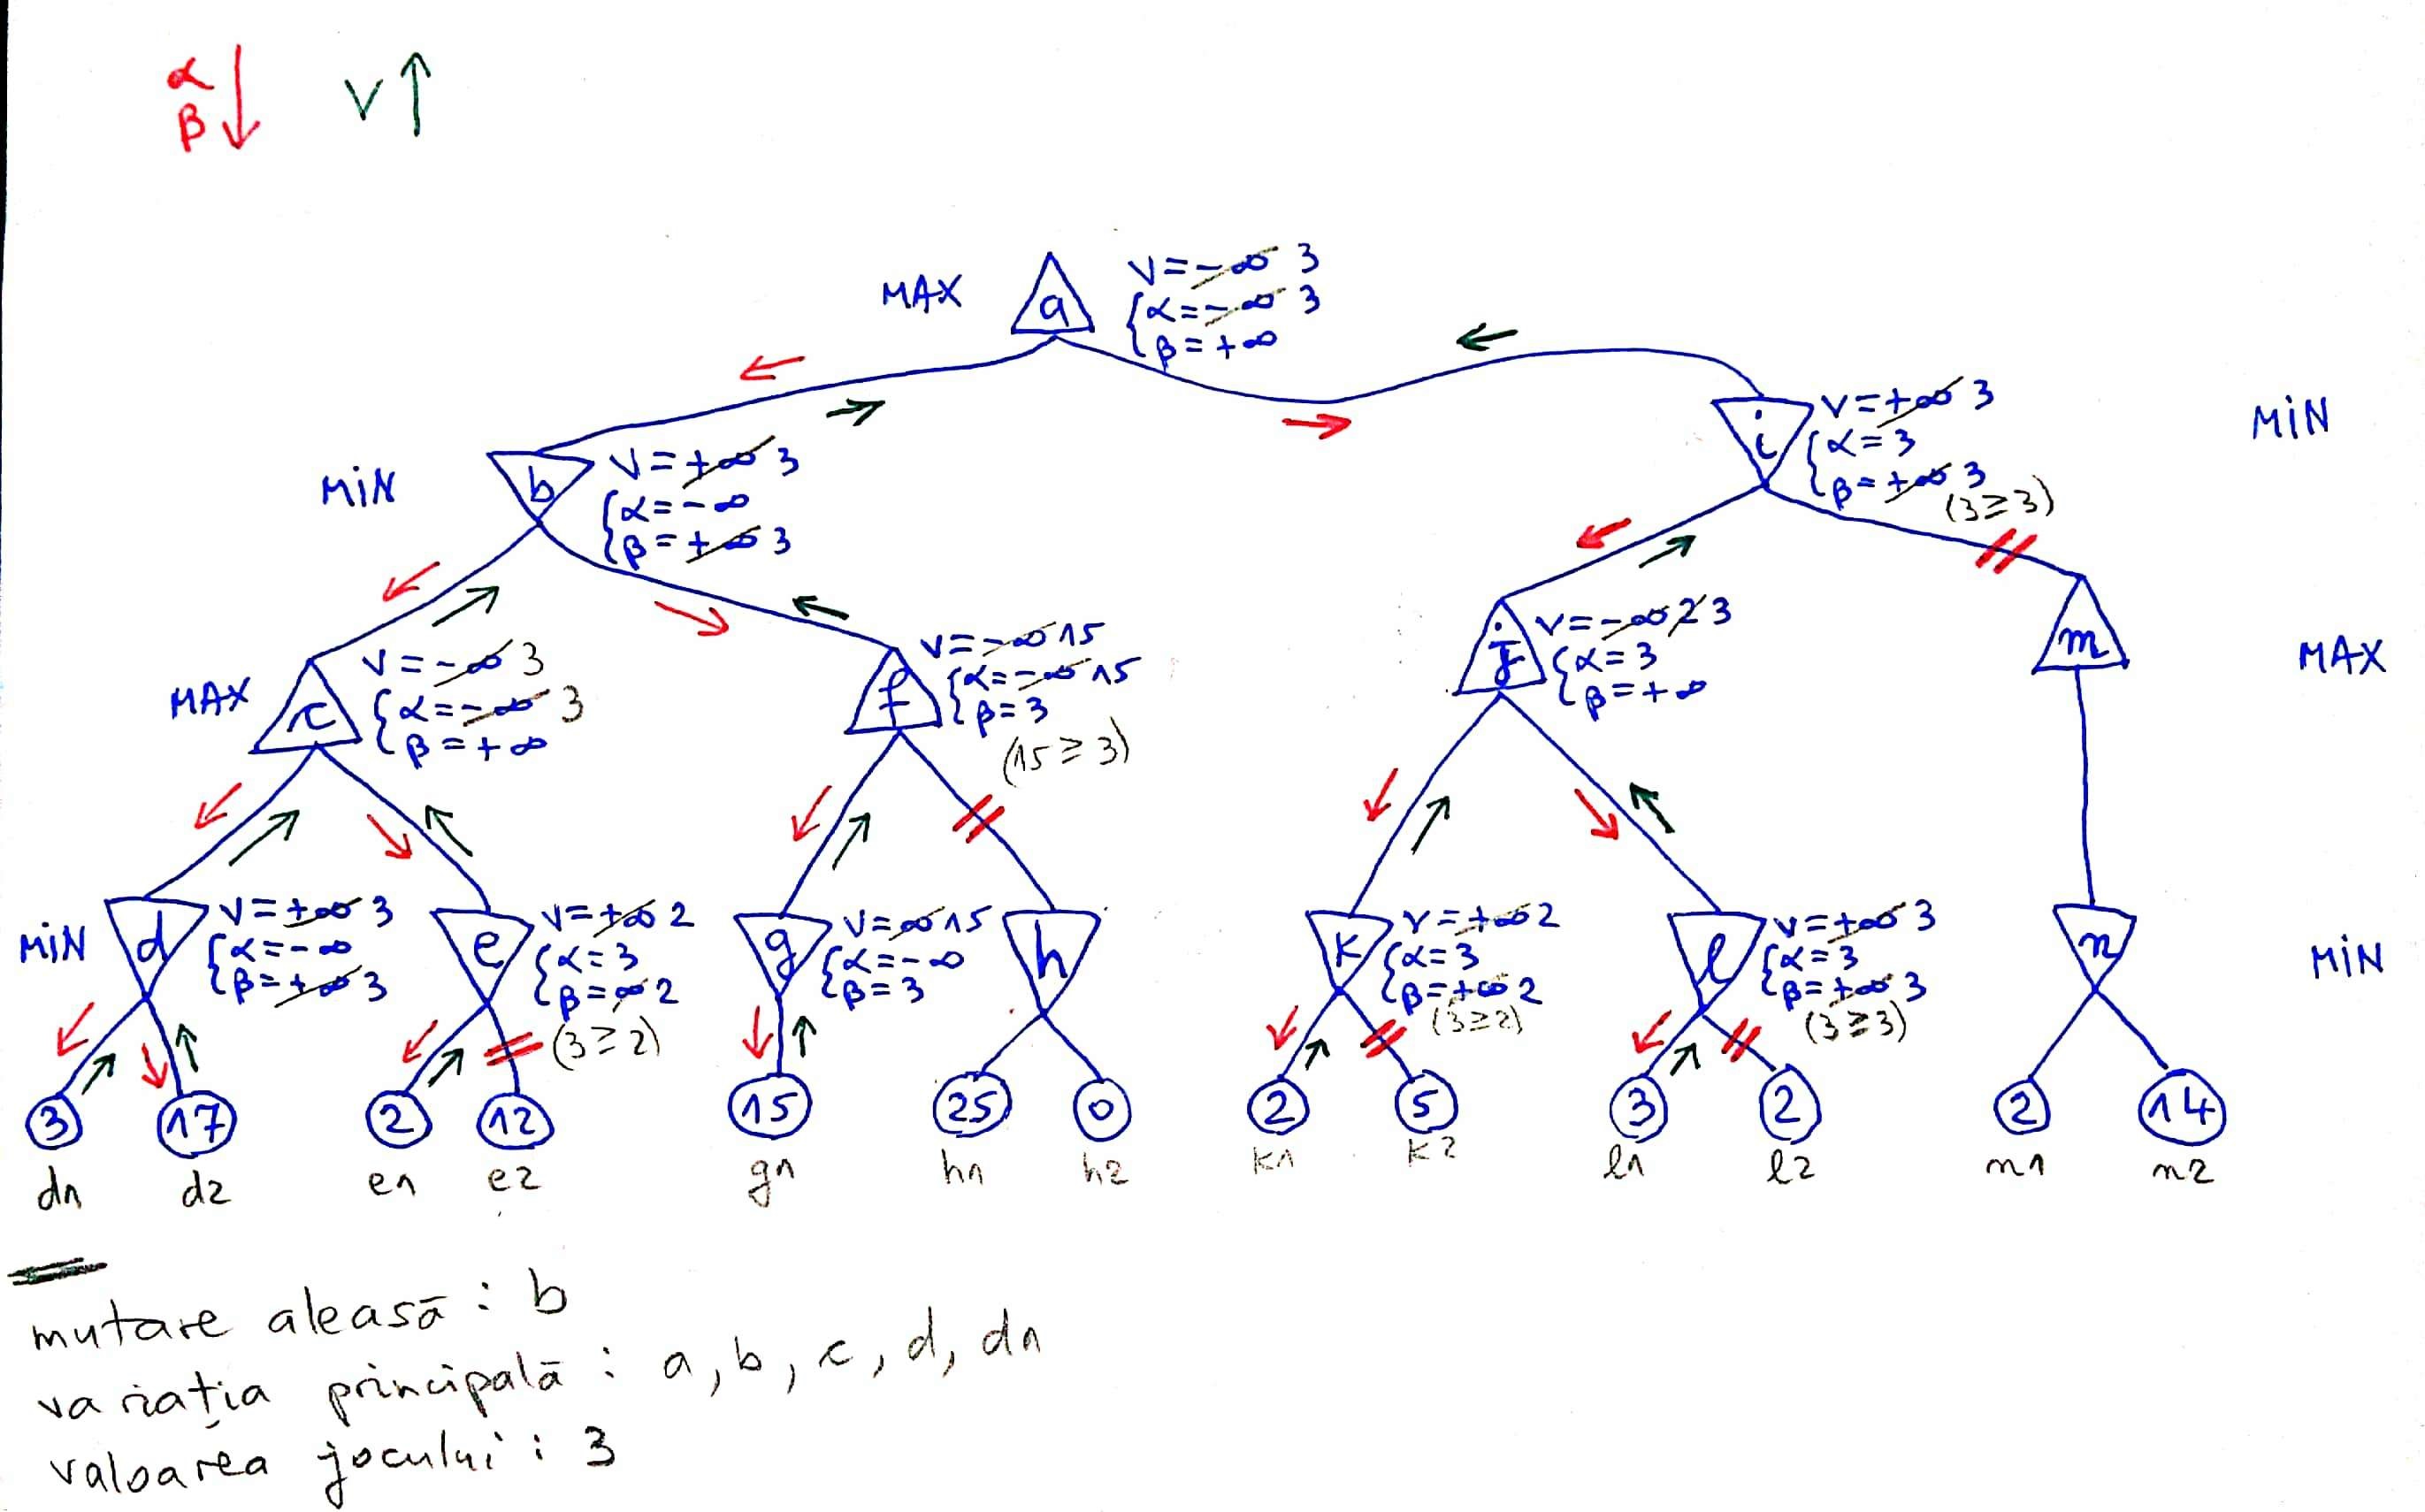 α
β ↓ V ↑
MAX a V = -∞ 3
{α = -∞ 3
β = +∞
MIN b V = +∞ 3
{α = -∞
β = +∞ 3
i V = +∞ 3
{α = 3
β = +∞ 3
(3 ≥ 3)
MIN
MAX c V = -∞ 3
{α = -∞ 3
β = +∞
f V = -∞ 15
{α = -∞ 15
β = 3
(15 ≥ 3)
j V = -∞ 2 3
{α = 3
β = +∞
m MAX
MIN d V = +∞ 3
{α = -∞
β = +∞ 3
e V = +∞ 2
{α = 3
β = ∞ 2
(3 ≥ 2)
g V = ∞ 15
{α = -∞
β = 3
h
k V = +∞ 2
{α = 3
β = +∞ 2
(3 ≥ 2)
l V = +∞ 3
{α = 3
β = +∞ 3
(3 ≥ 3)
n MIN
3 17 2 12 15 25 0 2 5 3 2 2 14
d1 d2 e1 e2 g1 h1 h2 k1 k2 l1 l2 n1 n2
mutare aleasă : b
variația principală : a, b, c, d, d1
valoarea jocului : 3